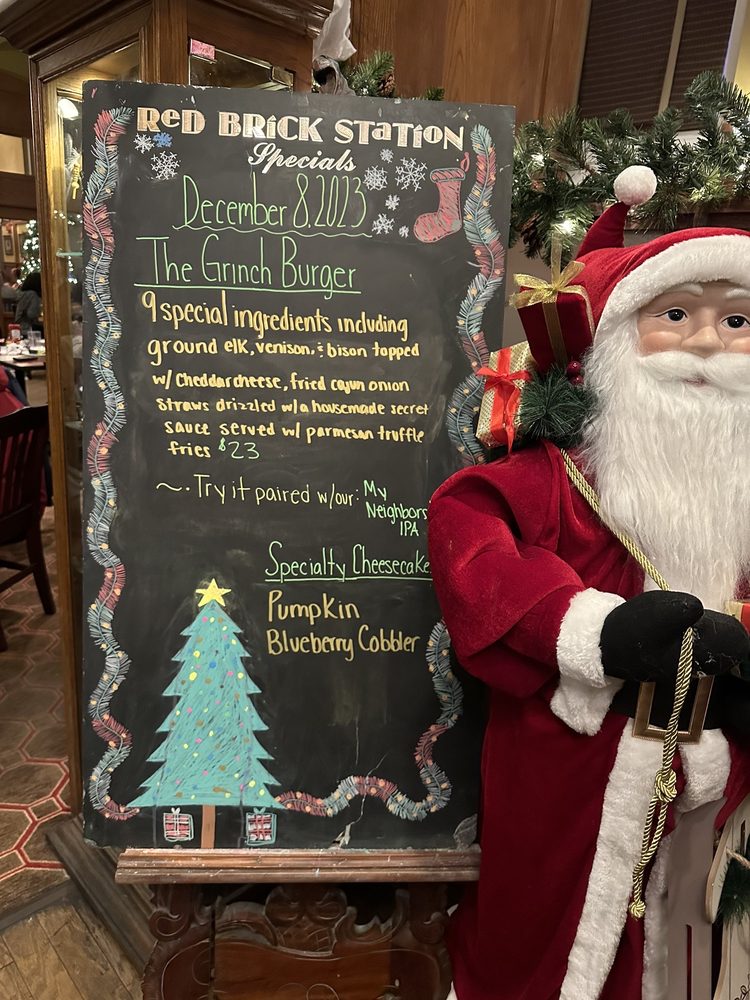 RED BRICK STATION
Specials
December 8, 2023
The Grinch Burger
9 special ingredients including
ground elk, venison, & bison topped
w/ cheddar cheese, fried cajun onion
straws drizzled w/ a housemade secret
sauce served w/ parmesan truffle
fries $23
~. Try it paired w/our: My
Neighbors
IPA
Specialty Cheesecake
Pumpkin
Blueberry Cobbler